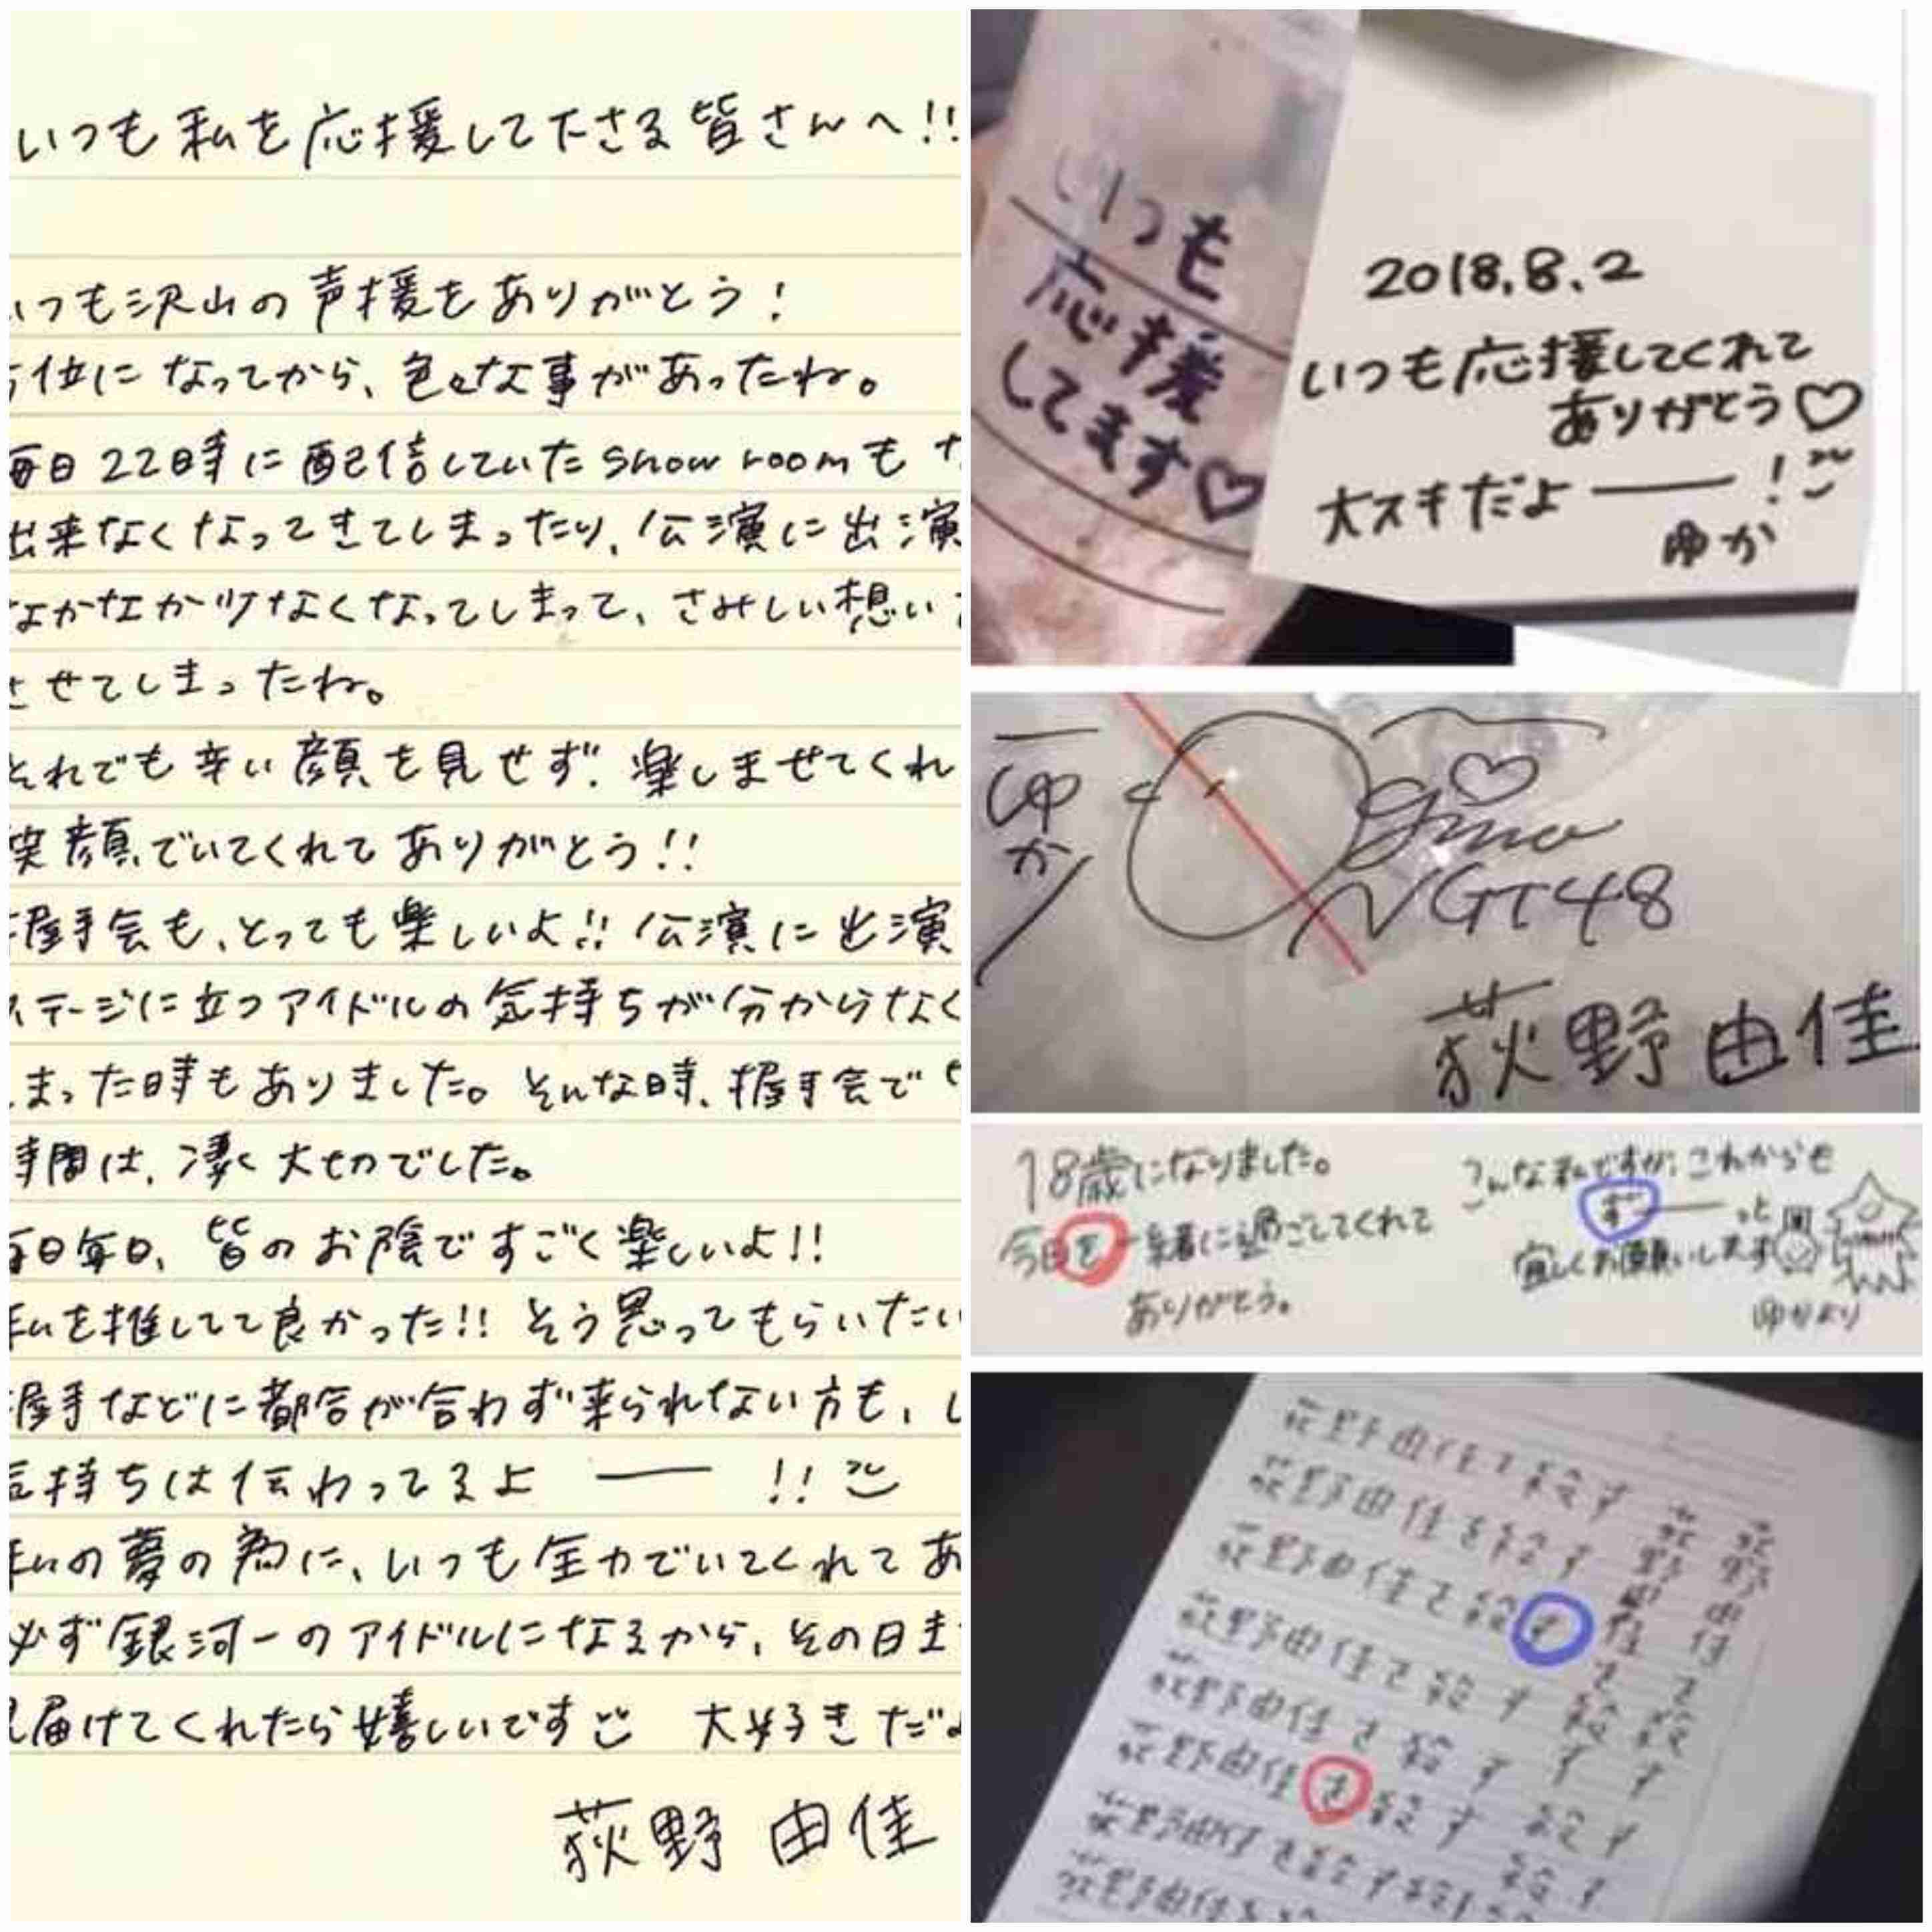 いつも私を応援して下さる皆さんへ!!
いつも沢山の声援をありがとう!
位になってから、色々な事があったね。
毎日22時に配信していたshowroomも
出来なくなってきてしまったり、公演に出演
なかなか少なくなってしまって、さみしい想い
させてしまったね。
それでも辛い顔を見せず、楽しませてくれ
笑顔でいてくれてありがとう!!
握手会も、とっても楽しいよ!!公演に出演
ステージに立つアイドルの気持ちが分からなく
まった時もありました。そんな時、握手会で
時間は、凄く大切でした。
毎日毎日、皆のお陰ですごく楽しいよ!!
私を推してて良かった!!そう思ってもらいたい
握手などに都合が合わず来られない方も、し
気持ちは伝わってるよ――!!
私の夢の為に、いつも全力でいてくれてあ
必ず銀河一のアイドルになるから、その日ま
見届けてくれたら嬉しいです 大好きだよ
荻野由佳
いつも
応援
してます♡
2018.8.2
いつも応援してくれて
ありがとう♡
大スキだよ――!
ゆか
ゆか
NGT48
荻野由佳
18歳になりました。
今日を一緒に過ごしてくれて
ありがとう。
こんな私ですが、これからも
ず――っと
宜しくお願いします
ゆかより
荻野由佳を殺す
荻野由佳を殺す
荻野由佳を殺す
荻野由佳を殺す
荻野由佳を殺す
荻野由佳を殺す
荻野由佳を殺す
荻野由佳を
荻野由佳を殺す
荻野由佳を殺す